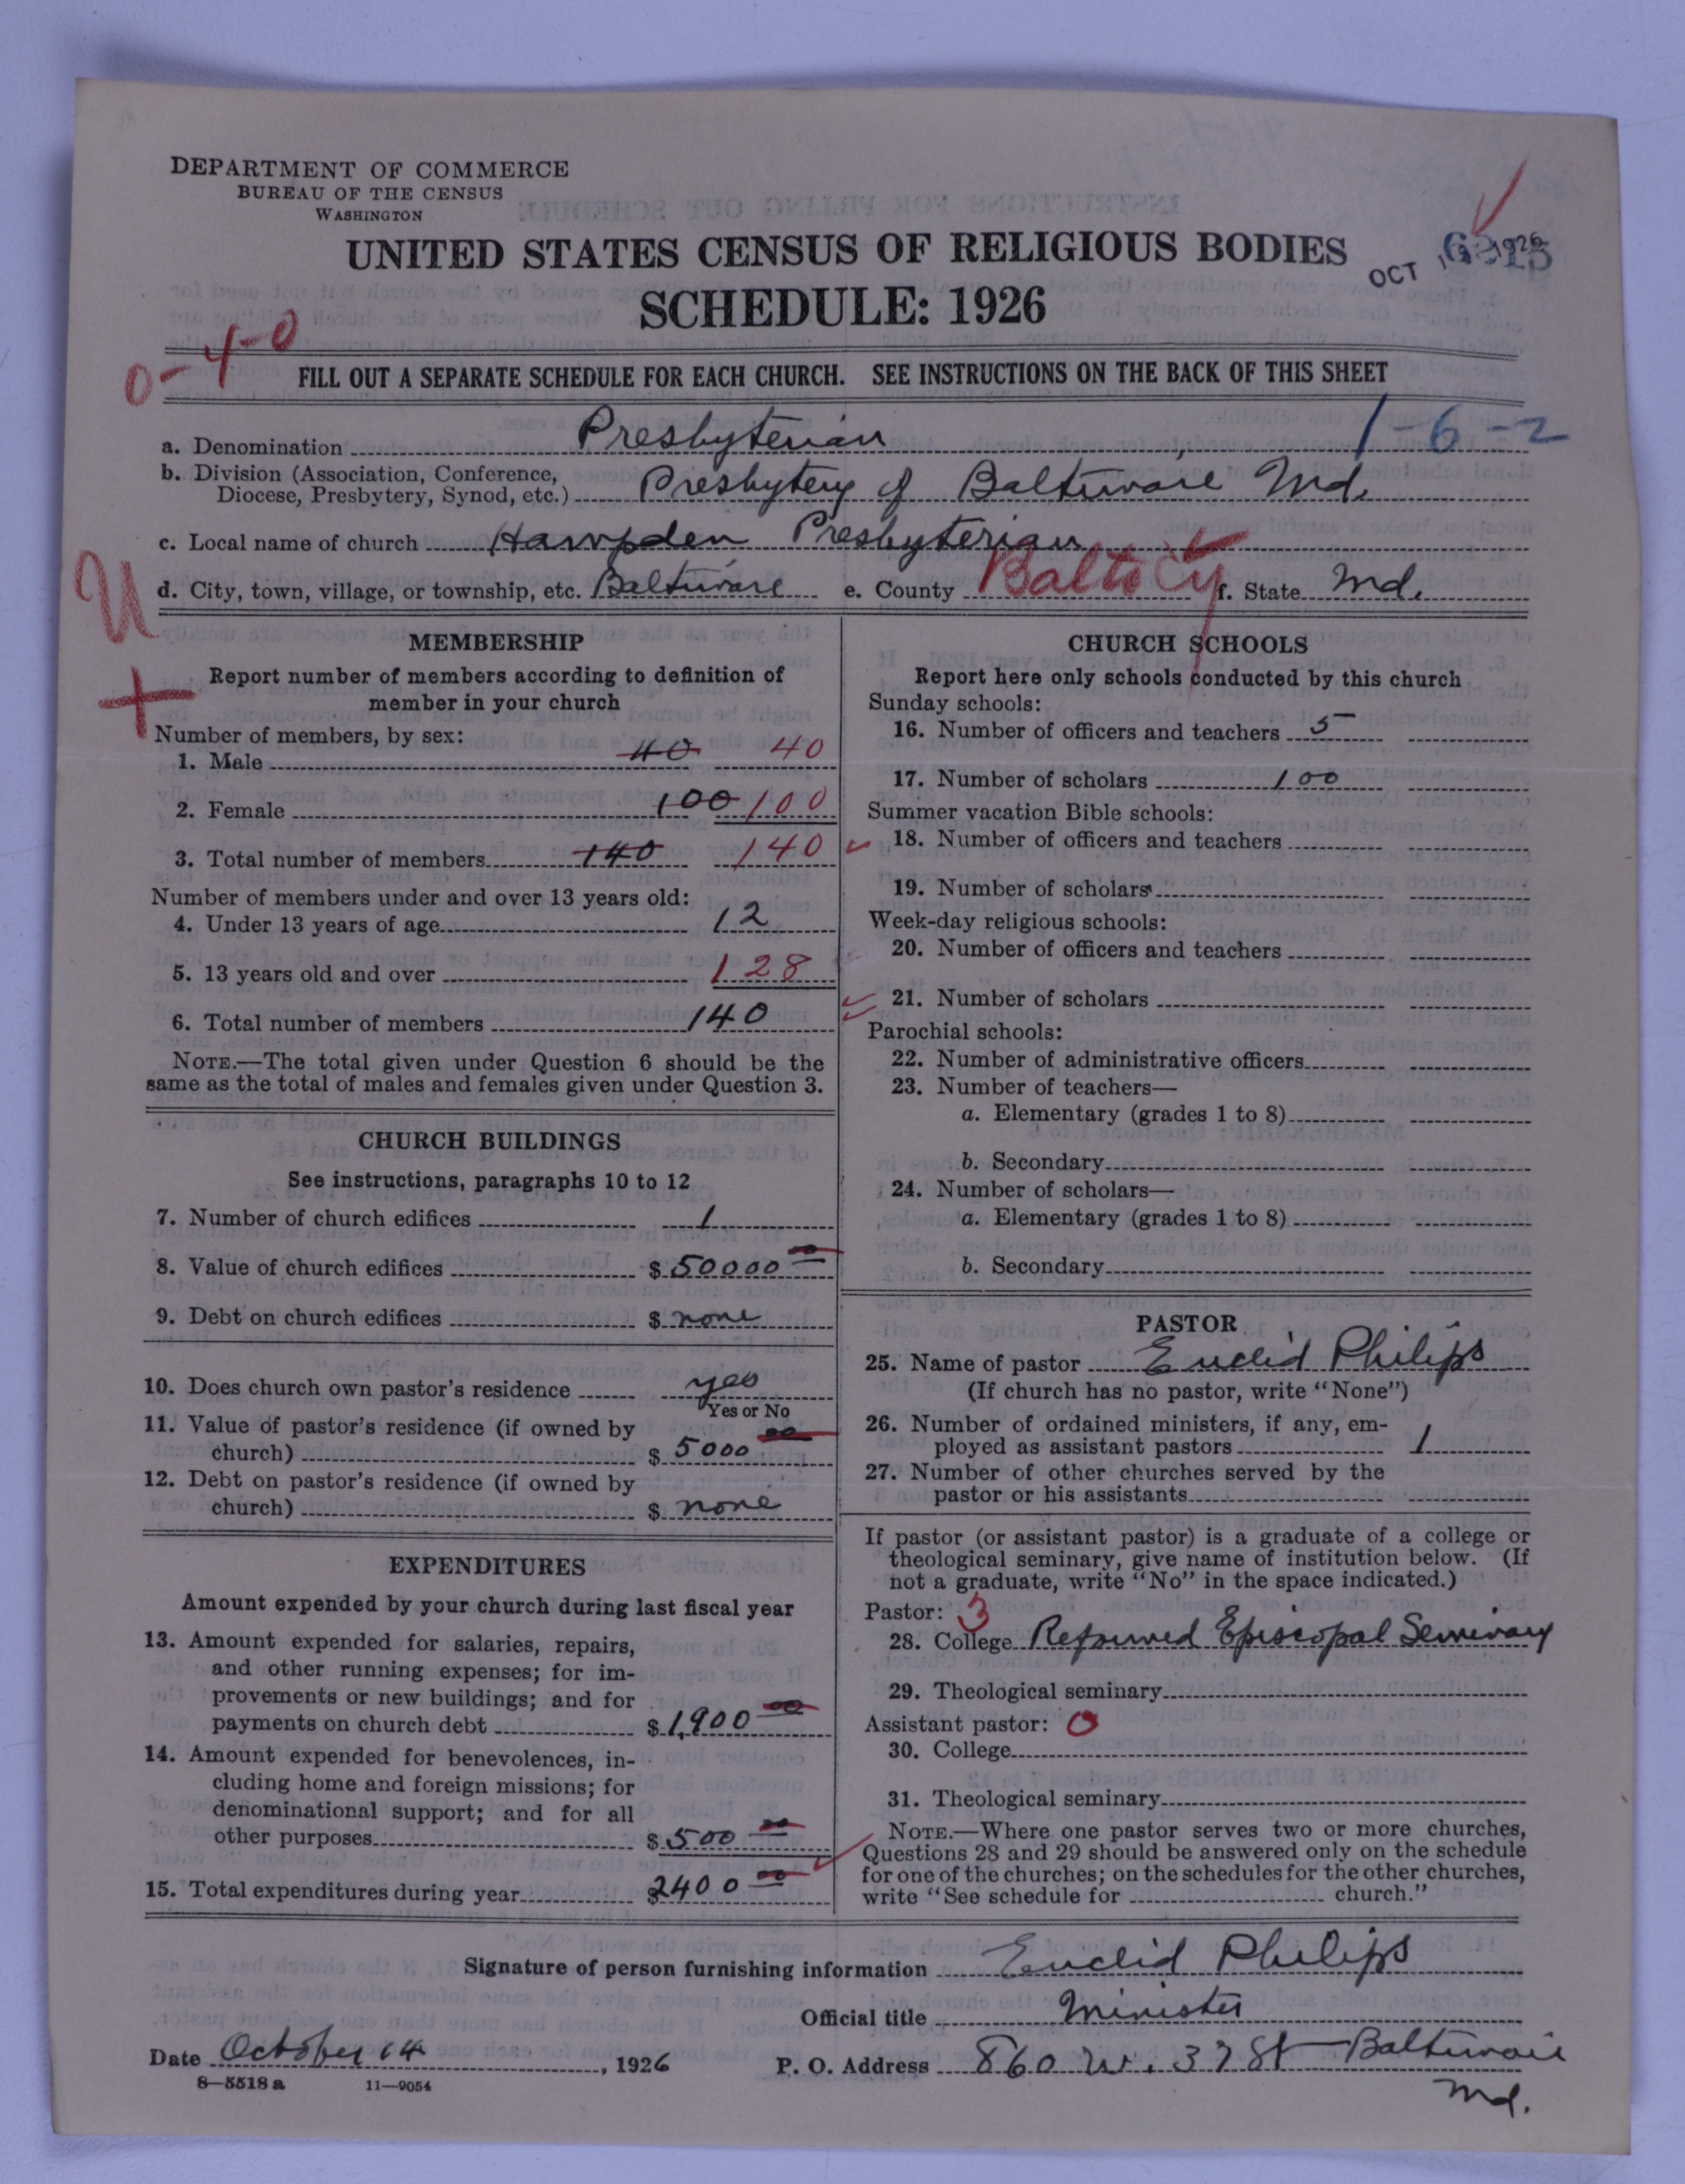 DEPARTMENT OF COMMERCE
BUREAU OF THE CENSUS
WASHINGTON
UNITED STATES CENSUS OF RELIGIOUS BODIES
OCT 1926
SCHEDULE: 1926
0-4-0
FILL OUT A SEPARATE SCHEDULE FOR EACH CHURCH. SEE INSTRUCTIONS ON THE BACK OF THIS SHEET
1-6-2
a. Denomination Presbyterian
b. Division (Association, Conference,
Diocese, Presbytery, Synod, etc.) Presbytery of Baltimore Md.
c. Local name of church Hampden Presbyterian
d. City, town, village, or township, etc. Baltimore e. County Balto Cy f. State Md.
U
+
MEMBERSHIP
Report number of members according to definition of
member in your church
Number of members, by sex:
1. Male 40 40
2. Female 100 100
3. Total number of members 140 140
Number of members under and over 13 years old:
4. Under 13 years of age 12
5. 13 years old and over 128
6. Total number of members 140
NOTE.—The total given under Question 6 should be the
same as the total of males and females given under Question 3.
CHURCH BUILDINGS
See instructions, paragraphs 10 to 12
7. Number of church edifices 1
8. Value of church edifices $ 50000 00
9. Debt on church edifices $ none
10. Does church own pastor's residence yes
Yes or No
11. Value of pastor's residence (if owned by
church) $ 5000 00
12. Debt on pastor's residence (if owned by
church) $ none
EXPENDITURES
Amount expended by your church during last fiscal year
13. Amount expended for salaries, repairs,
and other running expenses; for im-
provements or new buildings; and for
payments on church debt $ 1,900 00
14. Amount expended for benevolences, in-
cluding home and foreign missions; for
denominational support; and for all
other purposes $ 500 00
15. Total expenditures during year 2400 00
CHURCH SCHOOLS
Report here only schools conducted by this church
Sunday schools:
16. Number of officers and teachers 5
17. Number of scholars 100
Summer vacation Bible schools:
18. Number of officers and teachers
19. Number of scholars
Week-day religious schools:
20. Number of officers and teachers
21. Number of scholars
Parochial schools:
22. Number of administrative officers
23. Number of teachers—
a. Elementary (grades 1 to 8)
b. Secondary
24. Number of scholars—
a. Elementary (grades 1 to 8)
b. Secondary
PASTOR
25. Name of pastor Euclid Philips
(If church has no pastor, write "None")
26. Number of ordained ministers, if any, em-
ployed as assistant pastors 1
27. Number of other churches served by the
pastor or his assistants
If pastor (or assistant pastor) is a graduate of a college or
theological seminary, give name of institution below. (If
not a graduate, write "No" in the space indicated.)
Pastor: 3
28. College Reformed Episcopal Seminary
29. Theological seminary
Assistant pastor: 0
30. College
31. Theological seminary
NOTE.—Where one pastor serves two or more churches,
Questions 28 and 29 should be answered only on the schedule
for one of the churches; on the schedules for the other churches,
write "See schedule for church."
Signature of person furnishing information Euclid Philips
Official title Minister
Date October 14, 1926 P. O. Address 860 W. 37 St Baltimore
Md.
8—5518 a 11—9054